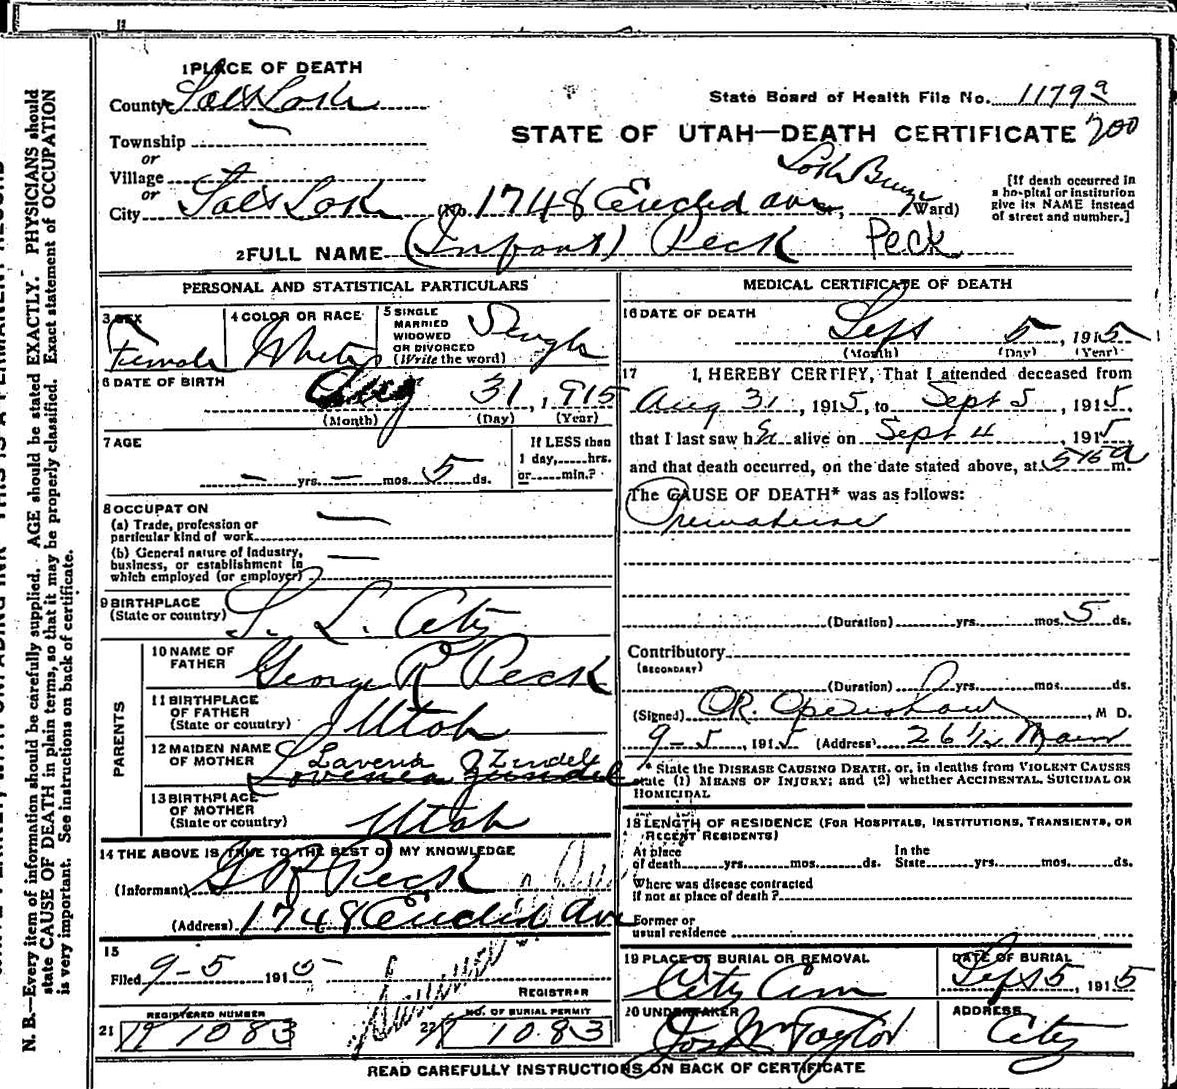 1 PLACE OF DEATH
County Salt Lake
State Board of Health File No. 1179a
Township —
STATE OF UTAH—DEATH CERTIFICATE 700
or
Village
or
City Salt Lake (No. 1748 Euclid ave St., Ward)
[If death occurred in a hospital or institution give its NAME instead of street and number.]
2 FULL NAME (Infant) Peck Peck
PERSONAL AND STATISTICAL PARTICULARS
3 SEX Female
4 COLOR OR RACE White
5 SINGLE MARRIED WIDOWED OR DIVORCED (Write the word) Single
6 DATE OF BIRTH
Aug 31, 915
(Month) (Day) (Year)
7 AGE
— yrs. — mos. 5 ds.
If LESS than 1 day, hrs. or min.?
8 OCCUPATION
(a) Trade, profession or particular kind of work —
(b) General nature of Industry, business, or establishment in which employed (or employer) —
9 BIRTHPLACE (State or country) S. L. City
PARENTS
10 NAME OF FATHER George R Peck
11 BIRTHPLACE OF FATHER (State or country) Utah
12 MAIDEN NAME OF MOTHER Lavena Zindel
13 BIRTHPLACE OF MOTHER (State or country) Utah
14 THE ABOVE IS TRUE TO THE BEST OF MY KNOWLEDGE
(Informant) G R Peck
(Address) 1748 Euclid Ave
15
Filed 9-5 1915
REGISTRAR
21 REGISTERED NUMBER 1083
22 NO. OF BURIAL PERMIT 1083
MEDICAL CERTIFICATE OF DEATH
16 DATE OF DEATH
Sept 5, 1915
(Month) (Day) (Year)
17 I, HEREBY CERTIFY, That I attended deceased from
Aug 31, 1915, to Sept 5, 1915,
that I last saw her alive on Sept 4, 1915
and that death occurred, on the date stated above, at 515 a m.
The CAUSE OF DEATH* was as follows:
Premature
(Duration) yrs. mos. 5 ds.
Contributory
(SECONDARY)
(Duration) yrs. mos. ds.
(Signed) , M D.
9-5, 1915 (Address) 26 1/2 Main
* State the DISEASE CAUSING DEATH, or, in deaths from VIOLENT CAUSES
state (1) MEANS OF INJURY; and (2) whether ACCIDENTAL, SUICIDAL OR
HOMICIDAL
18 LENGTH OF RESIDENCE (FOR HOSPITALS, INSTITUTIONS, TRANSIENTS, OR
RECENT RESIDENTS)
At place of death yrs. mos. ds. In the State yrs. mos. ds.
Where was disease contracted
if not at place of death?
Former or
usual residence
19 PLACE OF BURIAL OR REMOVAL City Cem
DATE OF BURIAL Sept 5, 1915
20 UNDERTAKER Jos Wm Taylor
ADDRESS City
READ CAREFULLY INSTRUCTIONS ON BACK OF CERTIFICATE
N. B.—Every item of information should be carefully supplied. AGE should be stated EXACTLY. PHYSICIANS should
state CAUSE OF DEATH in plain terms, so that it may be properly classified. Exact statement of OCCUPATION
is very important. See instructions on back of certificate.